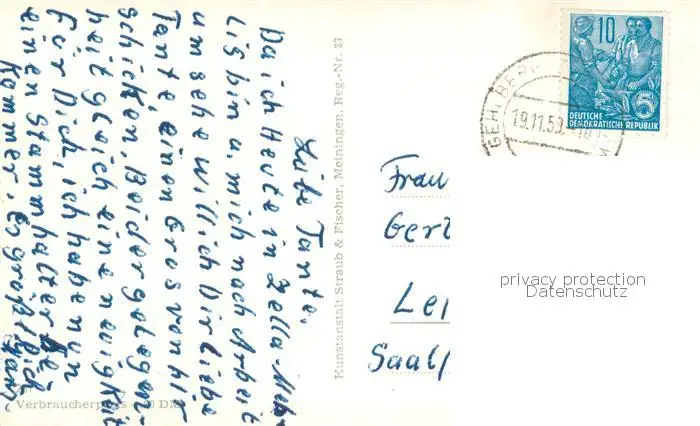 Liebe Tante.
Da ich Heute in Zella-Meh-
lis bin u. mich nach Arbeit
um sehe will ich Dir Liebe
Tante, einen Gros von hir
schicken. Bei der gelegen-
heit gleich eine neuigkeit
für Dich, ich habe nun
einen Stammhalter be-
kommen. Es grüßt Dich
Kunstanstalt Straub & Fischer, Meiningen, Reg.-Nr. 23
Verbraucherpreis DM
10
DEUTSCHE
DEMOKRATISCHE REPUBLIK
19.11.53
Frau
Gert
Lei
Saalf
privacy protection
Datenschutz